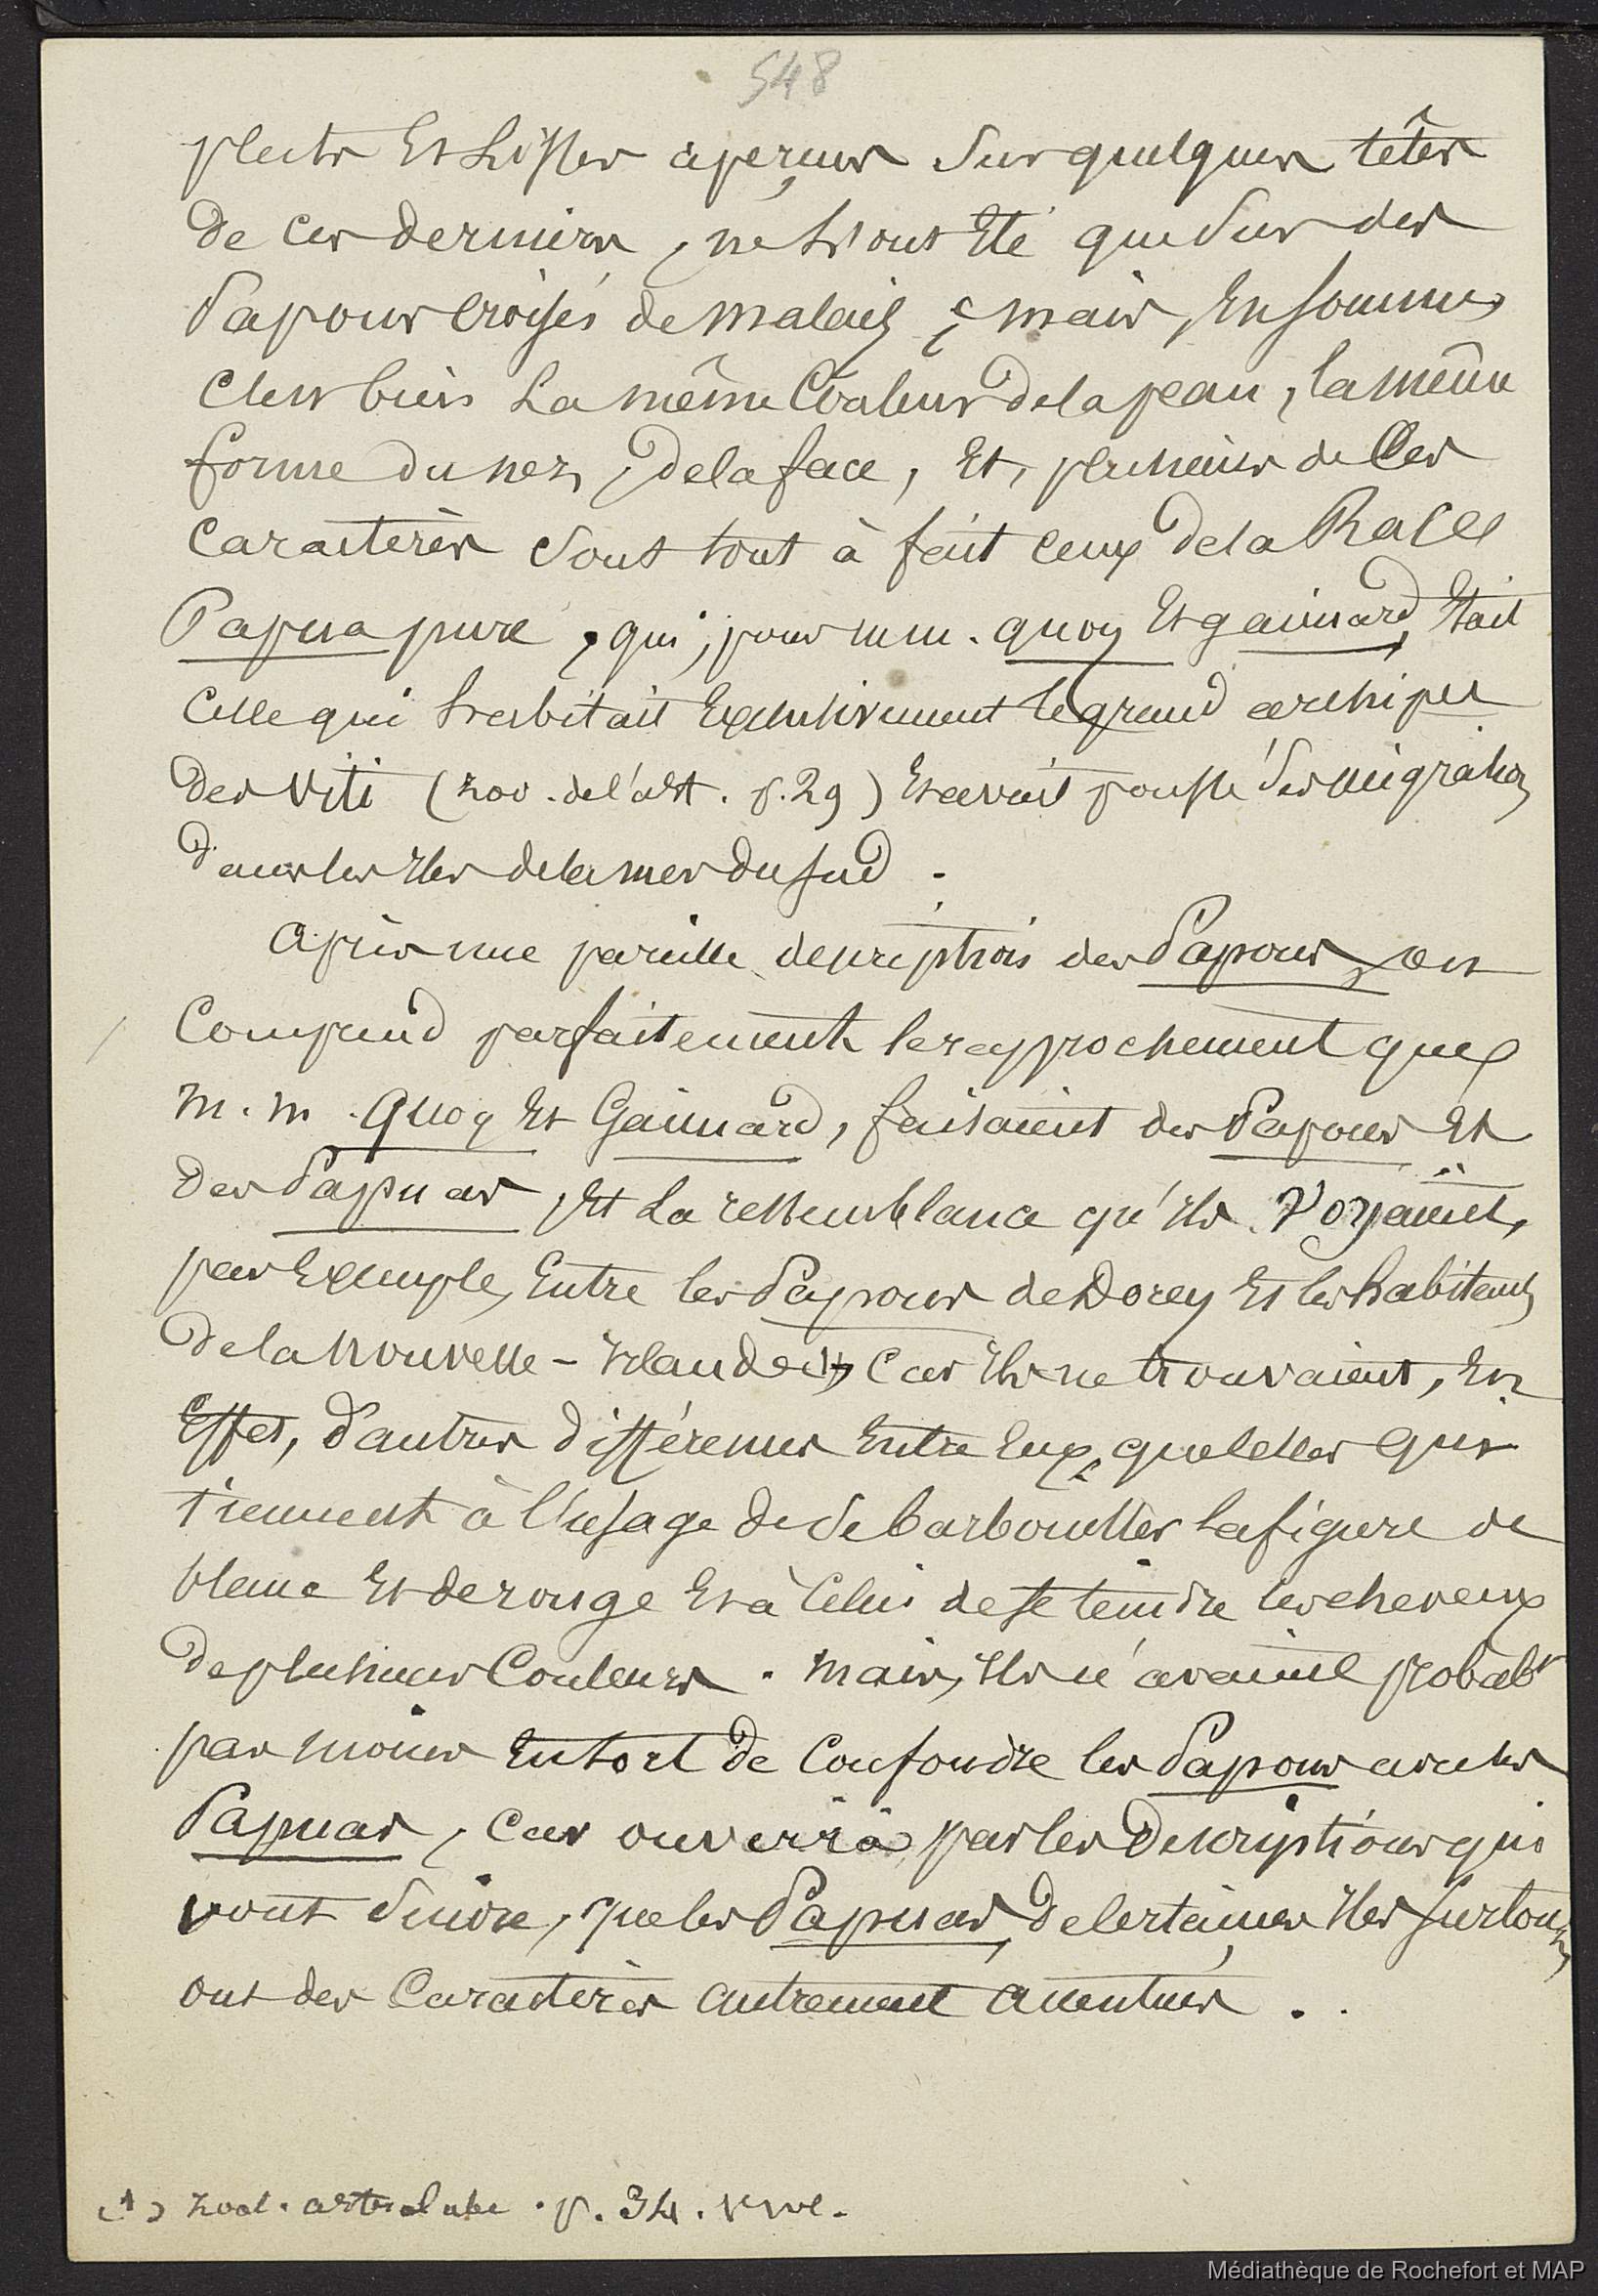 548
plats et lisses aperçus sur quelques têtes
de ces derniers, ne l'ont été que sur des
Papous croisés de malais ; mais, en somme,
c'est bien la même couleur de la peau, la même
forme du nez, de la face, et, plusieurs de ces
caractères sont tout à fait ceux de la Race
Papua pure, qui, pour mm. quoy et gaimard, était
celle qui habitait exclusivement le grand archipel
des Viti (zoo. de l'ast. p. 29) et avait poussé ses migrations
dans les îles de la mer du sud.
après une pareille description des Papous, on
comprend parfaitement le rapprochement que
m. m. Quoy et Gaimard, faisaient des Papous et
des Papuas, et la ressemblance qu'ils voyaient,
par exemple, entre les Papous de Dorey et les habitants
de la nouvelle-irlande (1) car ils ne trouvaient, en
effet, d'autres différences entre eux, que celles qui
tiennent à l'usage de se barbouiller la figure de
blanc et de rouge et à celui de se teindre les cheveux
de plusieurs couleurs. mais, ils n'avaient probabt
pas moins eu tort de confondre les Papous avec les
Papuas, car on verra par les descriptions qui
vont suivre, que les Papuas, de certaines îles surtout,
ont des caractères autrement accentués.
(1) zool. astrolabe. p. 34.
Médiathèque de Rochefort et MAP